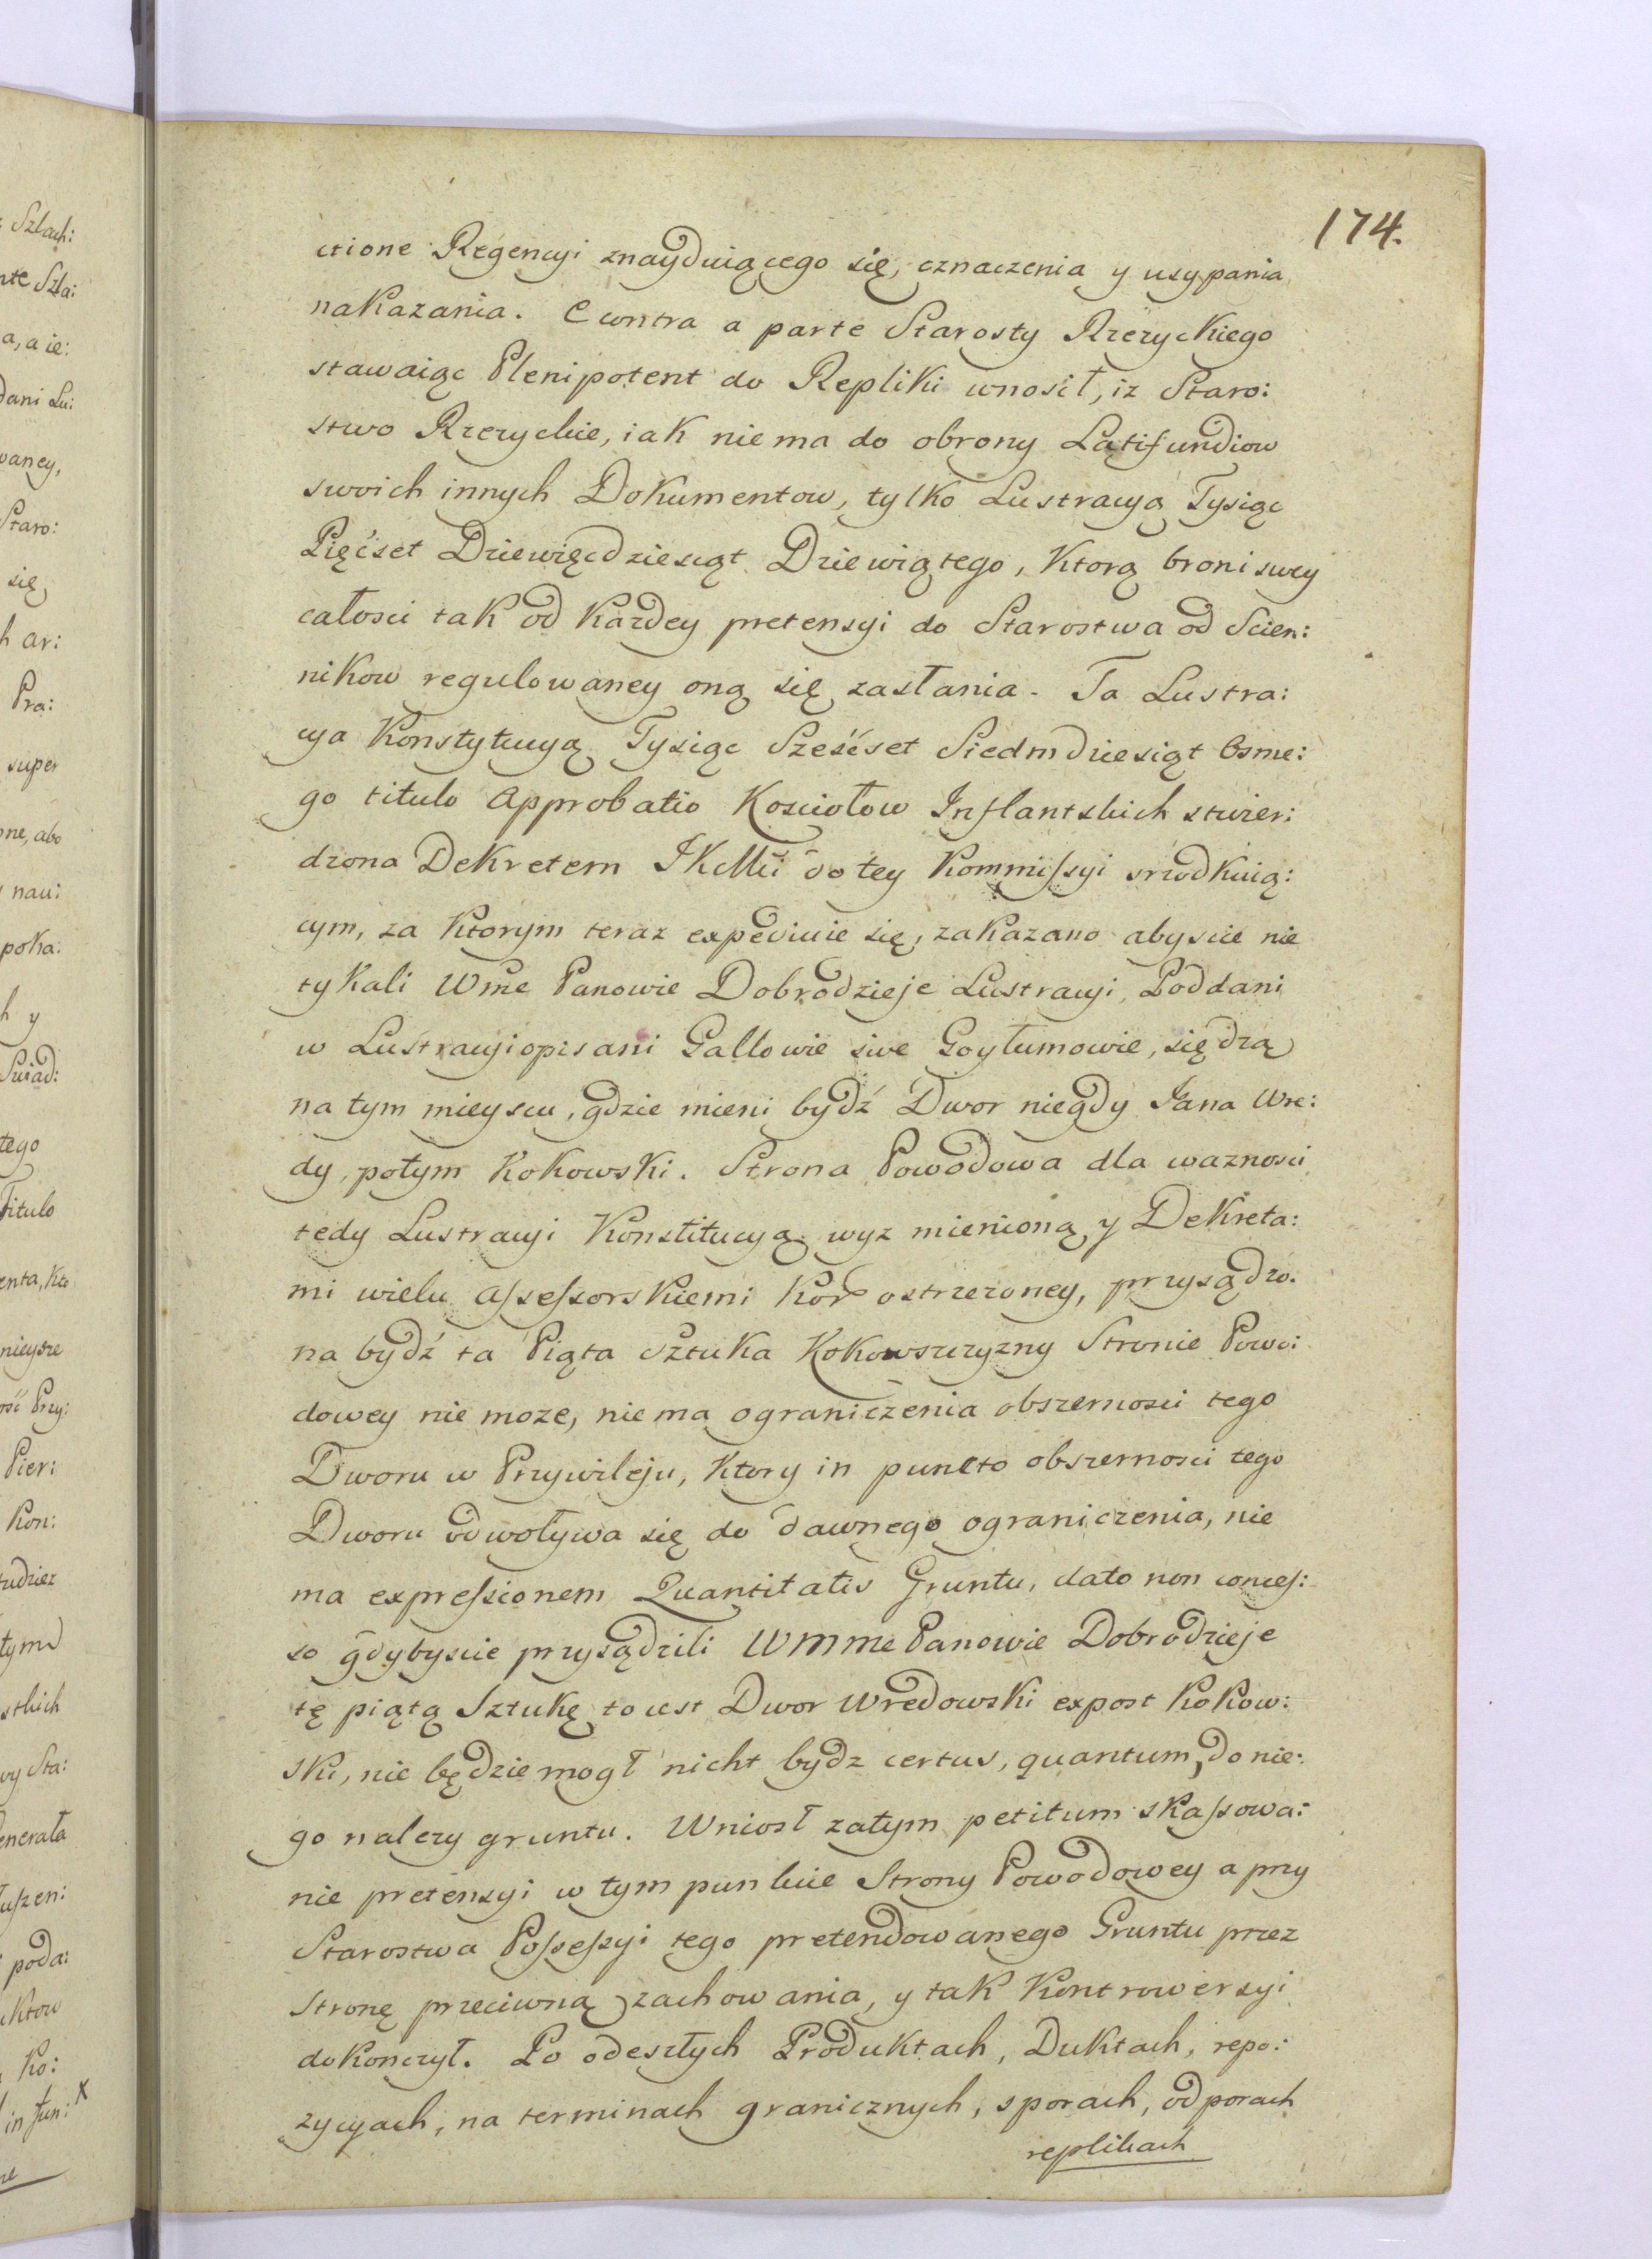 174.
ctione Regencyi znayduiącego się, oznaczenia y usypania
nakazania. E contra a parte Starosty Rzeżyckiego
stawaiąc Plenipotent do Repliki wnosił, iz Staro:
stwo Rzezyckie, iak nie ma do obrony Latifundiow
swoich innych Dokumentow, tylko Lustracyą Tysiąc
Pięćset Dziewięcdziesiąt Dziewiątego, Ktorą broni swey
całosci tak od Kazdey pretensyi do Starostwa od Scien:
nikow regulowaney oną się zasłania. Ta Lustra:
cya Konstytucyą Tysiąc Sześćset Siedmdziesiąt Osme:
go titulo Approbatio Kosciołow Inflantskich stwier:
dzona Dekretem JKMci do tey Kommissyi srzodkuią:
cym, za Ktorym teraz expediuie się, zakazano abyscie nie
tykali Wme Panowie Dobrodzieje Lustracyi, Poddani
w Lustracyi opisani Gallowie sive Goytumowie, siędzą
na tym mieyscu, gdzie mieni bydź Dwor niegdy Jana Wre:
dy, potym Kokowski. Strona Powodowa dla waznosci
tedy Lustracyi Konstitucyą wyz mienioną y Dekreta:
mi wielu Assessorskiemi Kor ostrzezoney, przysądzo:
na bydź ta Piąta Sztuka Kokowszczyzny Stronie Powo:
dowey nie moze, nie ma ograniczenia obszernosci tego
Dworu w Przywileju, Ktory in puncto obszernosci tego
Dworu odwoływa się do dawnego ograniczenia, nie
ma expressionem Quantitatis Gruntu, dato non conces:
so gdybyscie przysądzili WMMe Panowie Dobrodzieje
tę piątą Sztukę to iest Dwor Wredowski expost Kokow:
ski, nie będzie mogł nicht bydz certus, quantum do nie:
go nalezy gruntu. Wniosł zatym petitum skassowa:
nie pretensyi w tym punkcie Strony Powodowey a przy
Starostwa Possessyi tego pretendowanego Gruntu przez
Stronę przeciwną zachowania, y tak Kontrowersyi
dokonczył. Po odeszłych Produktach, Duktach, repo:
zycyach, na terminach granicznych, sporach, odporach
replikach